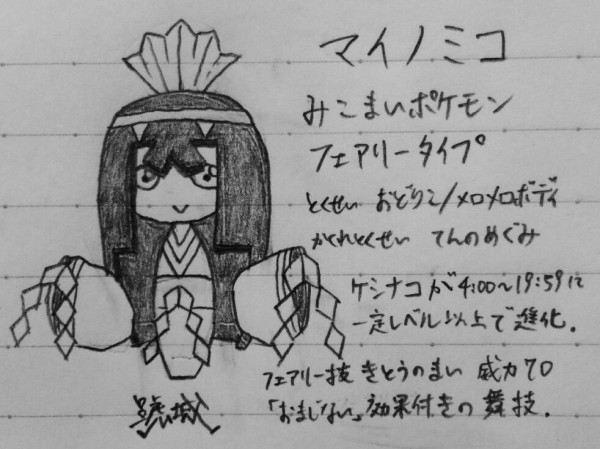 マイノミコ
みこまいポケモン
フェアリータイプ
とくせい おどりこ/メロメロボディ
かくれとくせい てんのめぐみ
ケシナコが4:00〜19:59に
一定レベル以上で進化.
フェアリー技 きとうのまい 威力70
「おまじない」効果付きの舞技.